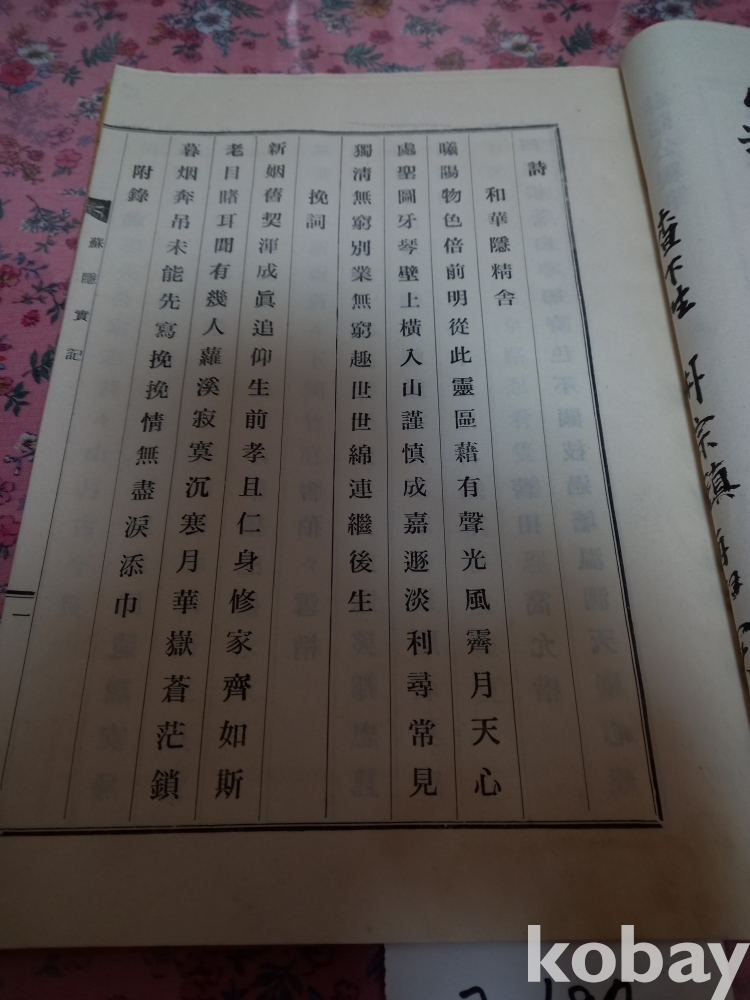 查下生
宗鎭
詩
和華隱精舍
曦陽物色倍前明從此靈區藉有聲光風霽月天心
處聖圖牙琴壁上橫入山謹愼成嘉遯淡利尋常見
獨淸無窮別業無窮趣世世綿連繼後生
挽詞
新姻舊契渾成眞追仰生前孝且仁身修家齊如斯
老目睹耳聞有幾人蘿溪寂寞沉寒月華嶽蒼茫鎖
暮烟奔吊未能先寫挽挽情無盡淚添巾
附錄
蘇隱實記
一
kobay